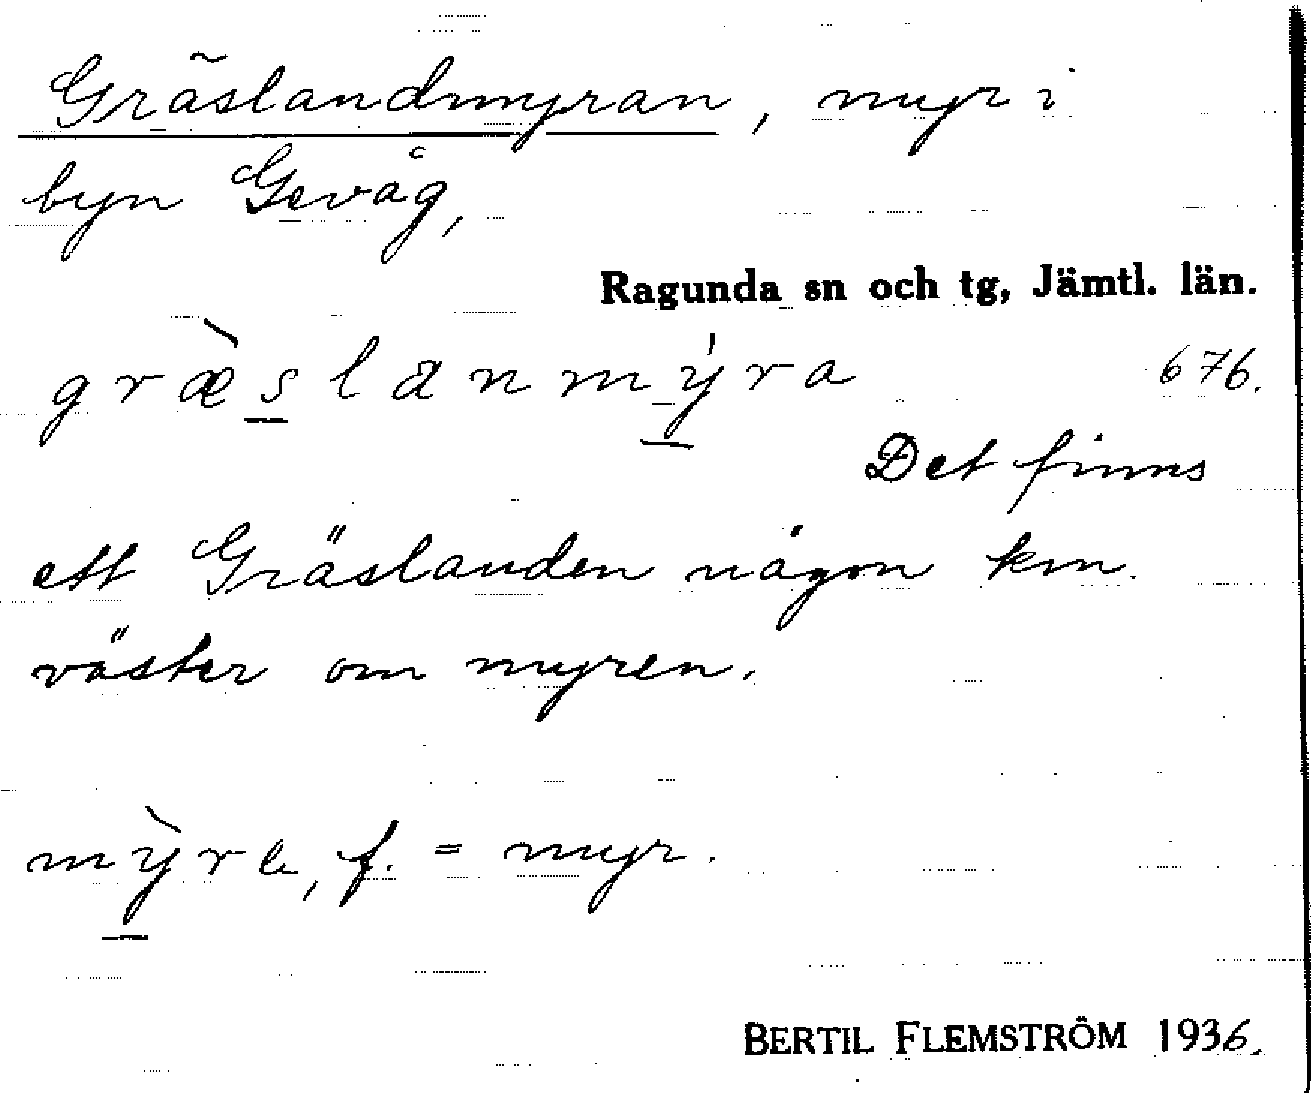 Gräslandmyran, myr i
byn Gevåg,
Ragunda sn och tg, Jämtl. län.
græ̀slanmýra 676.
Det finns
ett Gräslanden någon km
väster om myren.
mỳra, f. = myr.
BERTIL FLEMSTRÖM 1936.